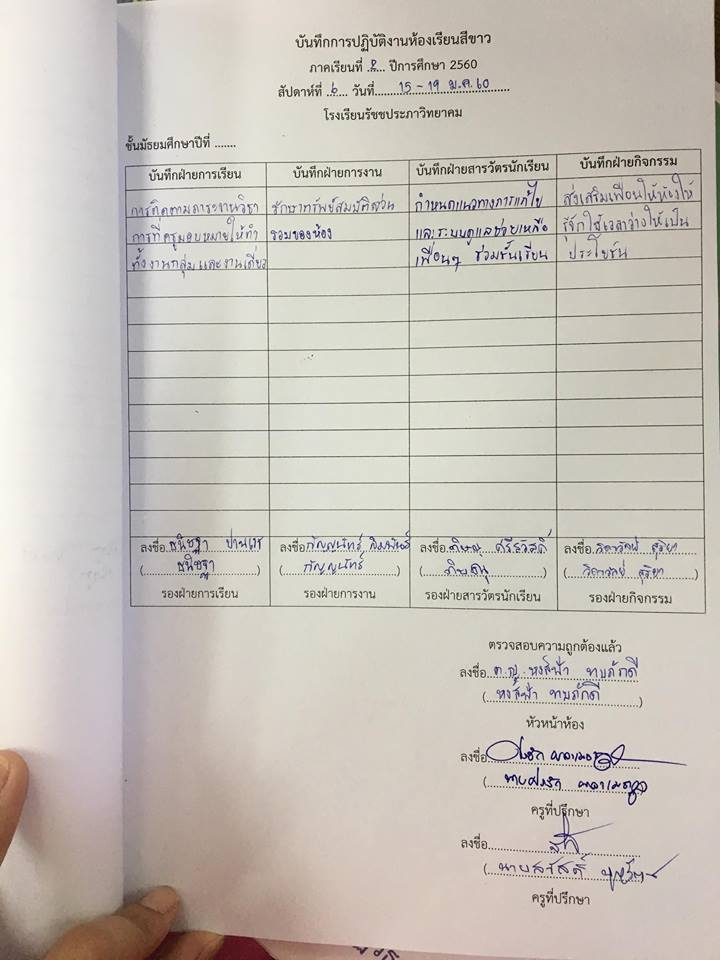 บันทึกการปฏิบัติงานห้องเรียนสีขาว
ภาคเรียนที่ ..๒... ปีการศึกษา 2560
สัปดาห์ที่ ..๖... วันที่ 15 - 19 ม.ค. ๖๐
โรงเรียนรัชชประภาวิทยาคม
ชั้นมัธยมศึกษาปีที่ .......
บันทึกฝ่ายการเรียน บันทึกฝ่ายการงาน บันทึกฝ่ายสารวัตรนักเรียน บันทึกฝ่ายกิจกรรม
การติดตามภาระงานวิชา รักษาทรัพย์สมบัติส่วน กำหนดแนวทางการแก้ไข ส่งเสริมเพื่อนให้ห้องให้
การที่ครูมอบหมายให้ทำ รวมของห้อง และระบบดูแลช่วยเหลือ รู้จักใช้เวลาว่างให้เป็น
ทั้งงานกลุ่มและงานเดี่ยว เพื่อนๆ ร่วมชั้นเรียน ประโยชน์
ลงชื่อ ธนิชฐา ลงชื่อ กัญญนัทร์ ลงชื่อ ศรีสวัสดิ์ ลงชื่อ
( ธนิชฐา ) ( กัญญนัทร์ ) ( ) ( )
รองฝ่ายการเรียน รองฝ่ายการงาน รองฝ่ายสารวัตรนักเรียน รองฝ่ายกิจกรรม
ตรวจสอบความถูกต้องแล้ว
ลงชื่อ ด.ญ. หงส์ฟ้า ทบภักดี
( หงส์ฟ้า ทบภักดี )
หัวหน้าห้อง
ลงชื่อ
ครูที่ปรึกษา
ลงชื่อ
( นายสวัสดิ์
ครูที่ปรึกษา